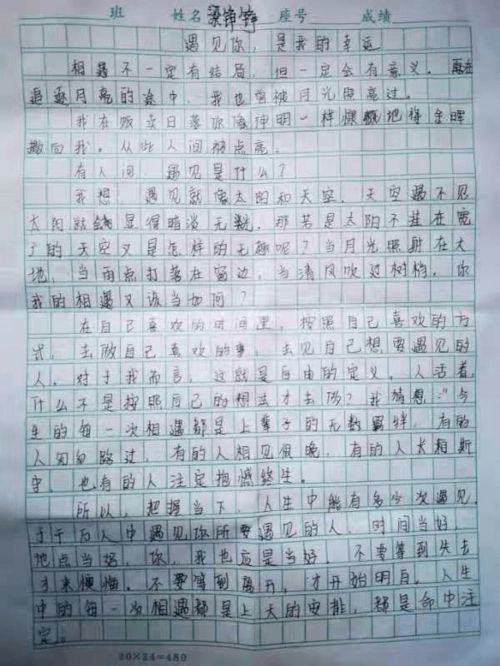 班 姓名 梁铮铮 座号 成绩
遇见你，是我的幸运
相遇不一定有结局，但一定会有意义。在
追逐月亮的途中，我也曾被月光照亮过。
我在贩卖日落你像神明一样慷慨地将余晖
撒向我。从此人间被点亮。
有人问，遇见是什么？
我想，遇见就像太阳和天空。天空遇不见
太阳就会显得暗淡无光，那若是太阳不挂在
的天空又是怎样的无趣呢？当月光照射在大
地，当雨点打落在窗边，当清风吹过树梢，你
我的相遇又该当如何？
在自己喜欢的时间里，按照自己喜欢的方
式，去做自己喜欢的事，去见自己想要遇见的
人。对于我而言，这就是自由的定义。人活着，
什么不是按照自己的想法才去做？我猜想："今
生的每一次相遇都是上辈子的无数羁绊，有的
人匆匆路过，有的人相见恨晚，有的人长相厮
守，也有的人注定抱憾终生。
所以，把握当下，人生中能有多少次遇见，
于千万人中遇见你所要遇见的人，时间当好，
地点当好，你、我也应是当好。不要等到失去
才来懊悔，不要等到离开，才开始明白。人生
中的每一次相遇都是上天的安排，都是命中注
定。
20×24=480